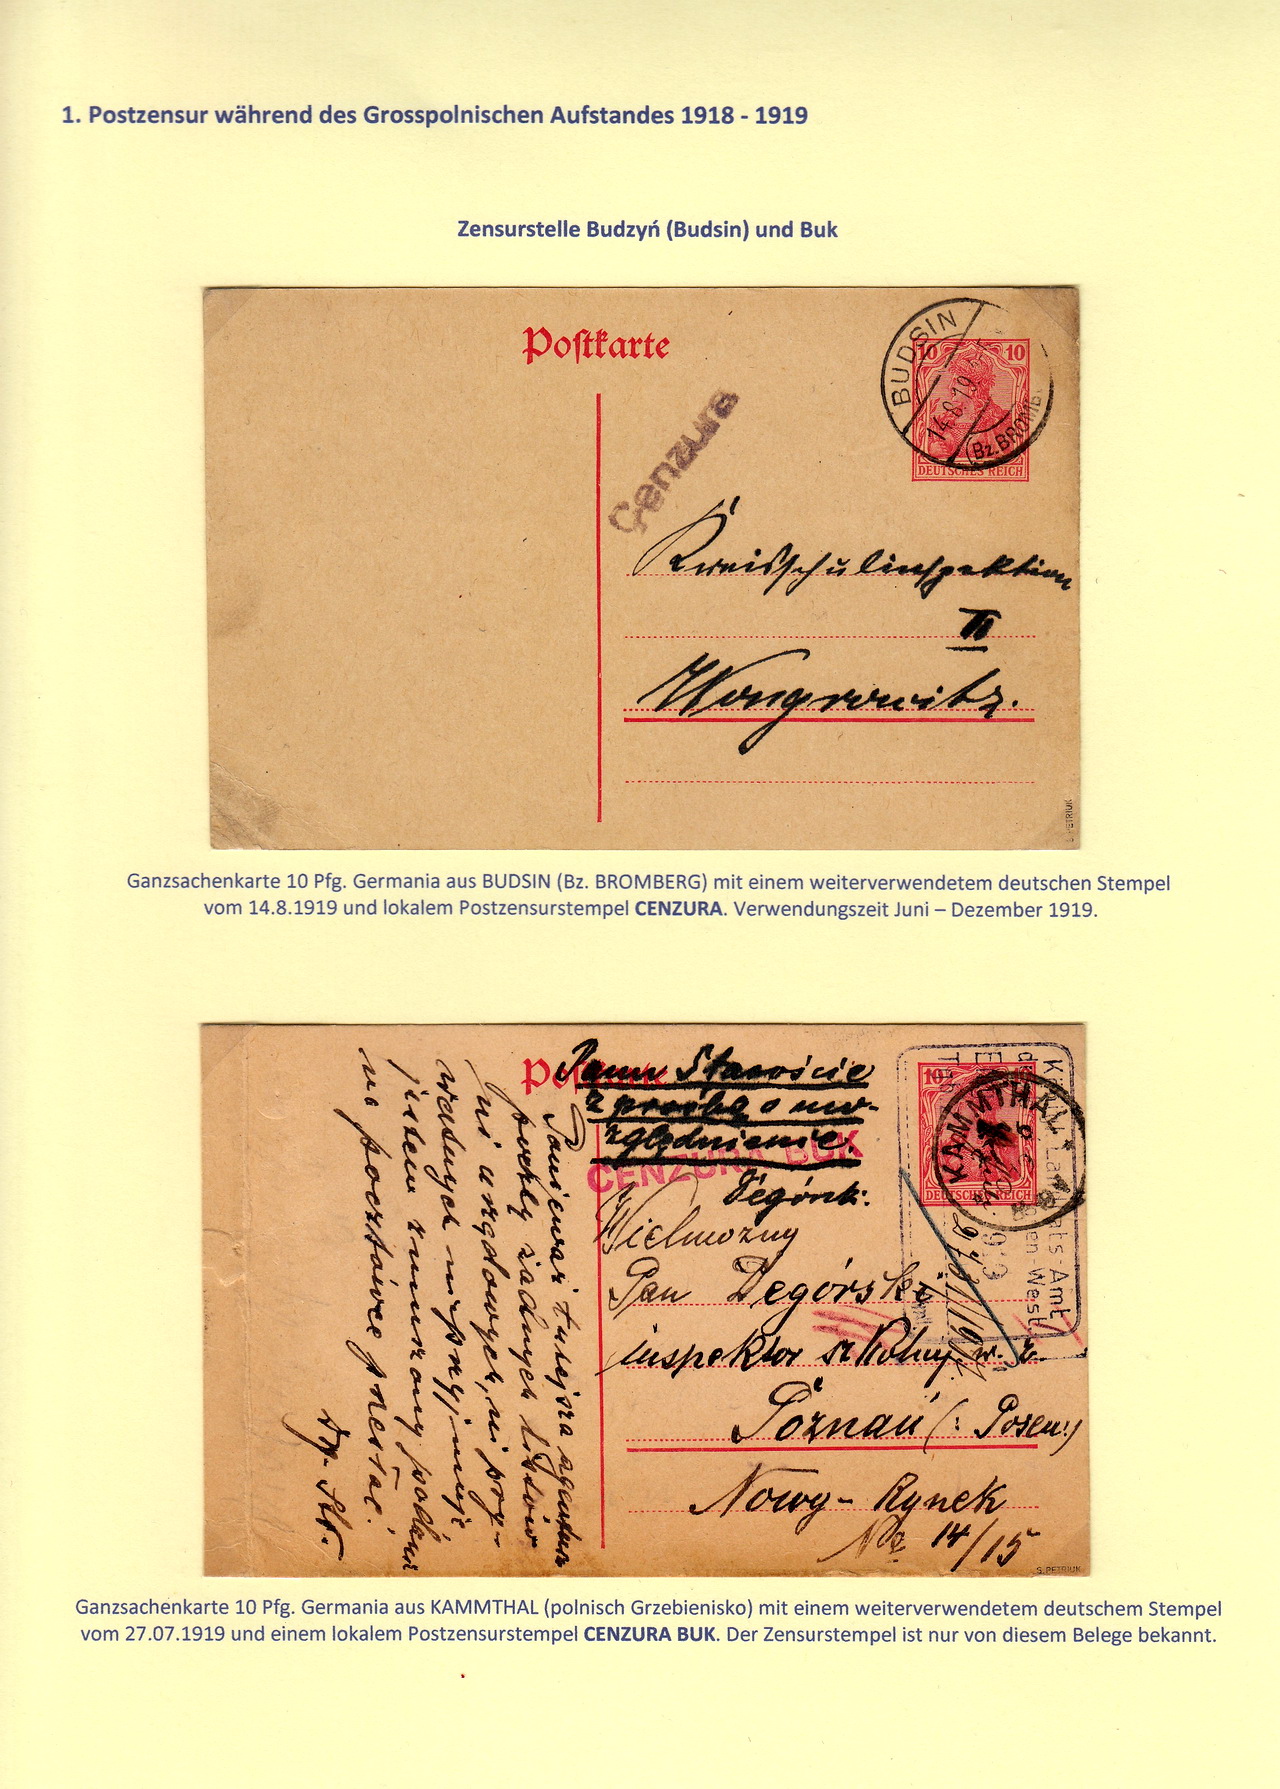 1. Postzensur während des Grosspolnischen Aufstandes 1918 - 1919
Zensurstelle Budzyń (Budsin) und Buk
Postkarte
BUDSIN
14.8.19
(Bz. BROMB.
10 10
DEUTSCHES REICH
Cenzura
Kreisschulinspektion
II
Wongrowitz.
S. PETRIUK
Ganzsachenkarte 10 Pfg. Germania aus BUDSIN (Bz. BROMBERG) mit einem weiterverwendetem deutschen Stempel
vom 14.8.1919 und lokalem Postzensurstempel CENZURA. Verwendungszeit Juni – Dezember 1919.
Panu Staroście
z prośbą o uw-
zględnienie.
Zegórsk:
CENZURA BUK
10
KAMMTHAL
DEUTSCHES REICH
27/7 19
Wielmożny
Pan Zegórski
inspektor szkolny w. z.
Poznań (: Posen:)
Nowy - Rynek
No 14/15
Ponieważ tutejsza agentura
poczty żadnych listów
ni urzędowych, ni pry-
watnych nie przyjmuje
jestem zmuszony podanie
na pocztówce przesłać.
S. PETRIUK
Ganzsachenkarte 10 Pfg. Germania aus KAMMTHAL (polnisch Grzebienisko) mit einem weiterverwendetem deutschem Stempel
vom 27.07.1919 und einem lokalem Postzensurstempel CENZURA BUK. Der Zensurstempel ist nur von diesem Belege bekannt.